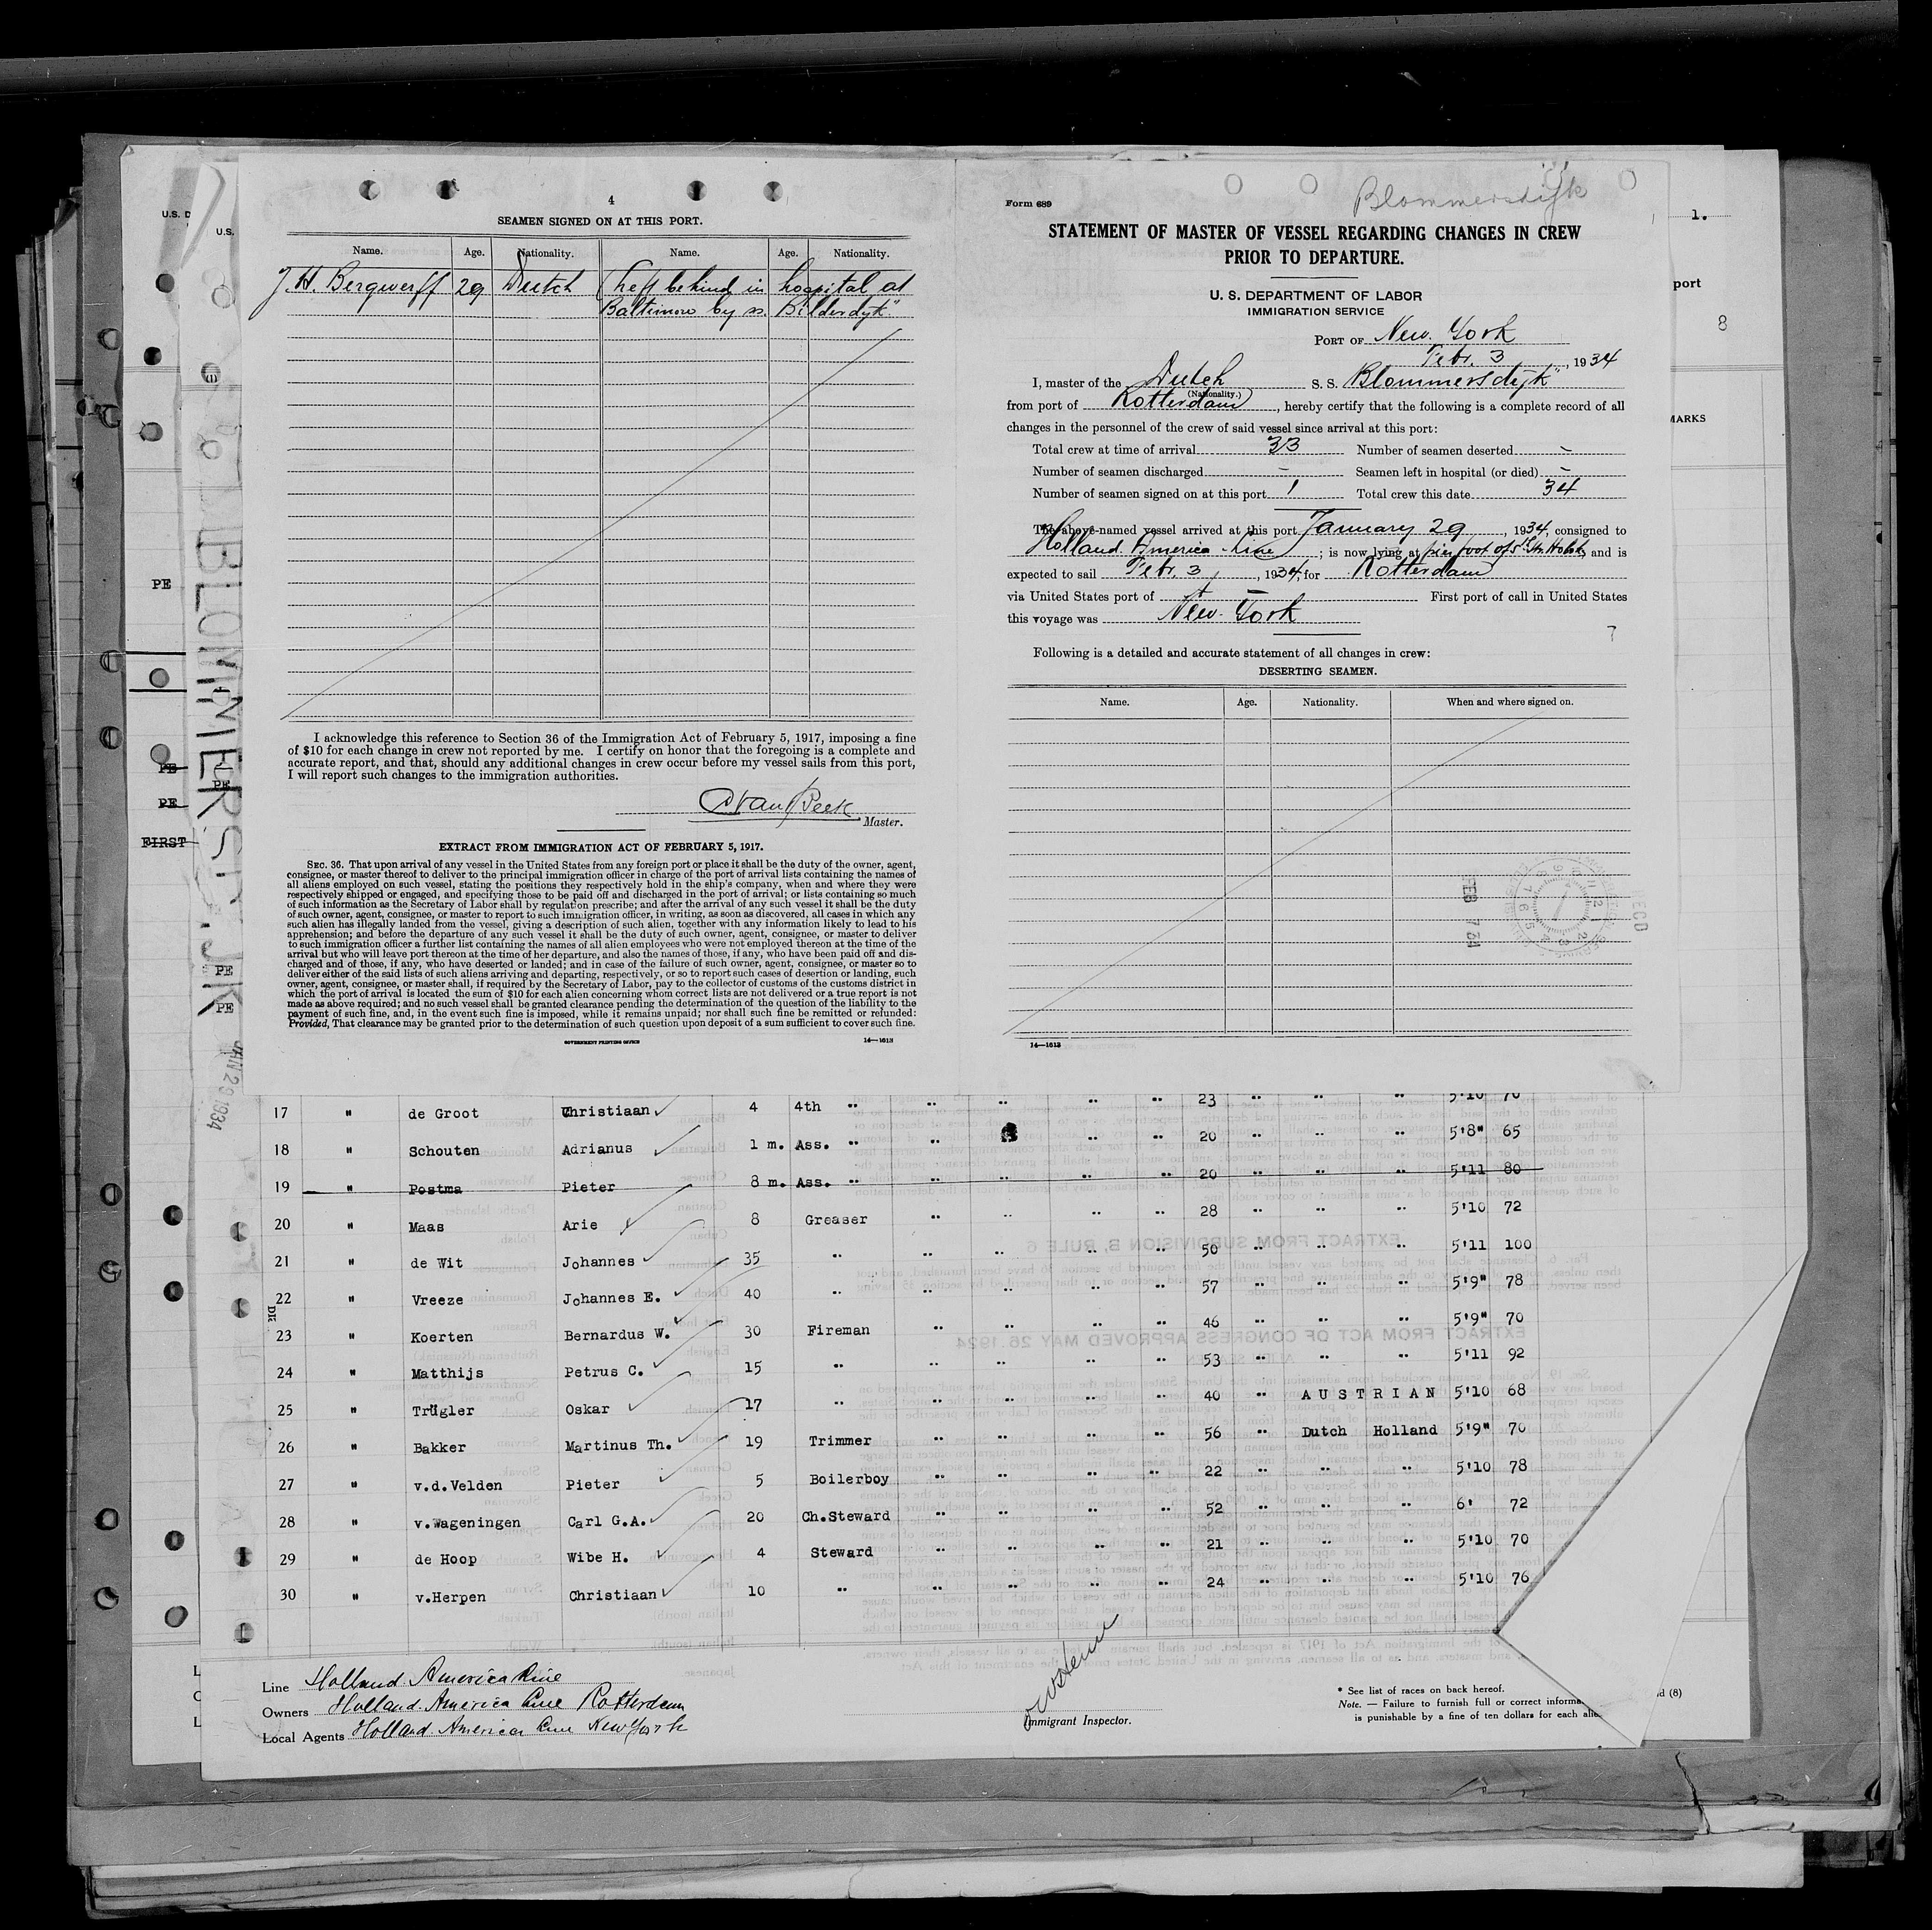 4
SEAMEN SIGNED ON AT THIS PORT.
Name. Age. Nationality. Name. Age. Nationality.
J. H. Bergwerff 29 Dutch (left behind in hospital at
Baltimore by ss. Bilderdyk"
I acknowledge this reference to Section 36 of the Immigration Act of February 5, 1917, imposing a fine
of $10 for each change in crew not reported by me. I certify on honor that the foregoing is a complete and
accurate report, and that, should any additional changes in crew occur before my vessel sails from this port,
I will report such changes to the immigration authorities.
Master.
EXTRACT FROM IMMIGRATION ACT OF FEBRUARY 5, 1917.
SEC. 36. That upon arrival of any vessel in the United States from any foreign port or place it shall be the duty of the owner, agent,
consignee, or master thereof to deliver to the principal immigration officer in charge of the port of arrival lists containing the names of
all aliens employed on such vessel, stating the positions they respectively hold in the ship's company, when and where they were
respectively shipped or engaged, and specifying those to be paid off and discharged in the port of arrival; or lists containing so much
of such information as the Secretary of Labor shall by regulation prescribe; and after the arrival of any such vessel it shall be the duty
of such owner, agent, consignee, or master to report to such immigration officer, in writing, as soon as discovered, all cases in which any
such alien has illegally landed from the vessel, giving a description of such alien, together with any information likely to lead to his
apprehension; and before the departure of any such vessel it shall be the duty of such owner, agent, consignee, or master to deliver
to such immigration officer a further list containing the names of all alien employees who were not employed thereon at the time of the
arrival but who will leave port thereon at the time of her departure, and also the names of those, if any, who have been paid off and dis-
charged and of those, if any, who have deserted or landed; and in case of the failure of such owner, agent, consignee, or master so to
deliver either of the said lists of such aliens arriving and departing, respectively, or so to report such cases of desertion or landing, such
owner, agent, consignee, or master shall, if required by the Secretary of Labor, pay to the collector of customs of the customs district in
which the port of arrival is located the sum of $10 for each alien concerning whom correct lists are not delivered or a true report is not
made as above required; and no such vessel shall be granted clearance pending the determination of the question of the liability to the
payment of such fine, and, in the event such fine is imposed, while it remains unpaid; nor shall such fine be remitted or refunded:
Provided, That clearance may be granted prior to the determination of such question upon deposit of a sum sufficient to cover such fine.
GOVERNMENT PRINTING OFFICE 14—1613
Blommersdijk
Form 689
STATEMENT OF MASTER OF VESSEL REGARDING CHANGES IN CREW
PRIOR TO DEPARTURE.
U. S. DEPARTMENT OF LABOR
IMMIGRATION SERVICE
PORT OF New York
Febr. 3, 1934
I, master of the Dutch S. S. Blommersdijk"
(Nationality.)
from port of Rotterdam, hereby certify that the following is a complete record of all
changes in the personnel of the crew of said vessel since arrival at this port:
Total crew at time of arrival 33 Number of seamen deserted -
Number of seamen discharged - Seamen left in hospital (or died) -
Number of seamen signed on at this port 1 Total crew this date 34
The above-named vessel arrived at this port January 29, 1934, consigned to
Holland America Line; is now lying at pier foot of 5th Str. Hobok, and is
expected to sail Febr. 3, 1934, for Rotterdam
via United States port of — First port of call in United States
this voyage was New York
Following is a detailed and accurate statement of all changes in crew:
DESERTING SEAMEN.
Name. Age. Nationality. When and where signed on.
REC'D
FEB 7 34
14—1613
1.
port
8
MARKS
U.S. D
U.S.
PE
PE
PE
FIRST
PE
PE
PE
BLOMMERSDIJK
JAN 29 1934
17 " de Groot Christiaan 4 4th " " " " " 23 " " " 5'10 70
18 " Schouten Adrianus 1 m. Ass. " " " " 20 " " " 5'8" 65
19 " Postma Pieter 8 m. Ass. " " " " " 20 " " " 5'11 80
20 " Maas Arie 8 Greaser " " " " 28 " " " 5'10 72
21 " de Wit Johannes 35 " " " " " 50 " " " 5'11 100
22 " Vreeze Johannes E. 40 " " " " " 57 " " " 5'9" 78
23 " Koerten Bernardus W. 30 Fireman " " " " 46 " " " 5'9" 70
24 " Matthijs Petrus C. 15 " " " " " 53 " " " 5'11 92
25 " Trügler Oskar 17 " " " " " 40 " AUSTRIAN 5'10 68
26 " Bakker Martinus Th. 19 Trimmer " " " " 56 " Dutch Holland 5'9" 70
27 " v.d.Velden Pieter 5 Boilerboy " " " " 22 " " " 5'10 78
28 " v.Wageningen Carl G.A. 20 Ch.Steward " " " " 52 " " " 6' 72
29 " de Hoop Wibe H. 4 Steward " " " " 21 " " " 5'10 70
30 " v.Herpen Christiaan 10 " " " " " 24 " " " 5'10 76
Line Holland America Line
Owners Holland America Line Rotterdam
Local Agents Holland America Line New York
Immigrant Inspector.
* See list of races on back hereof.
Note. — Failure to furnish full or correct informa
is punishable by a fine of ten dollars for each alie
d (8)